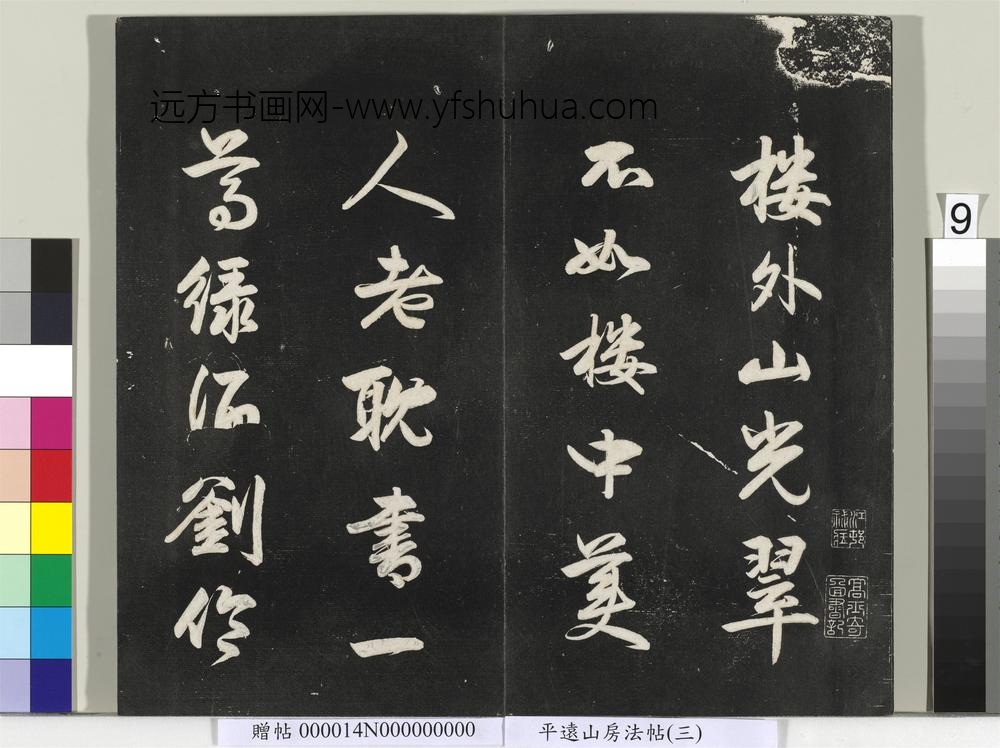 远方书画网-www.yfshuhua.com
楼外山光翠
不如楼中美
人老耽書一
尊绿酒劉伶
9
贈帖 000014N000000000
平遠山房法帖(三)